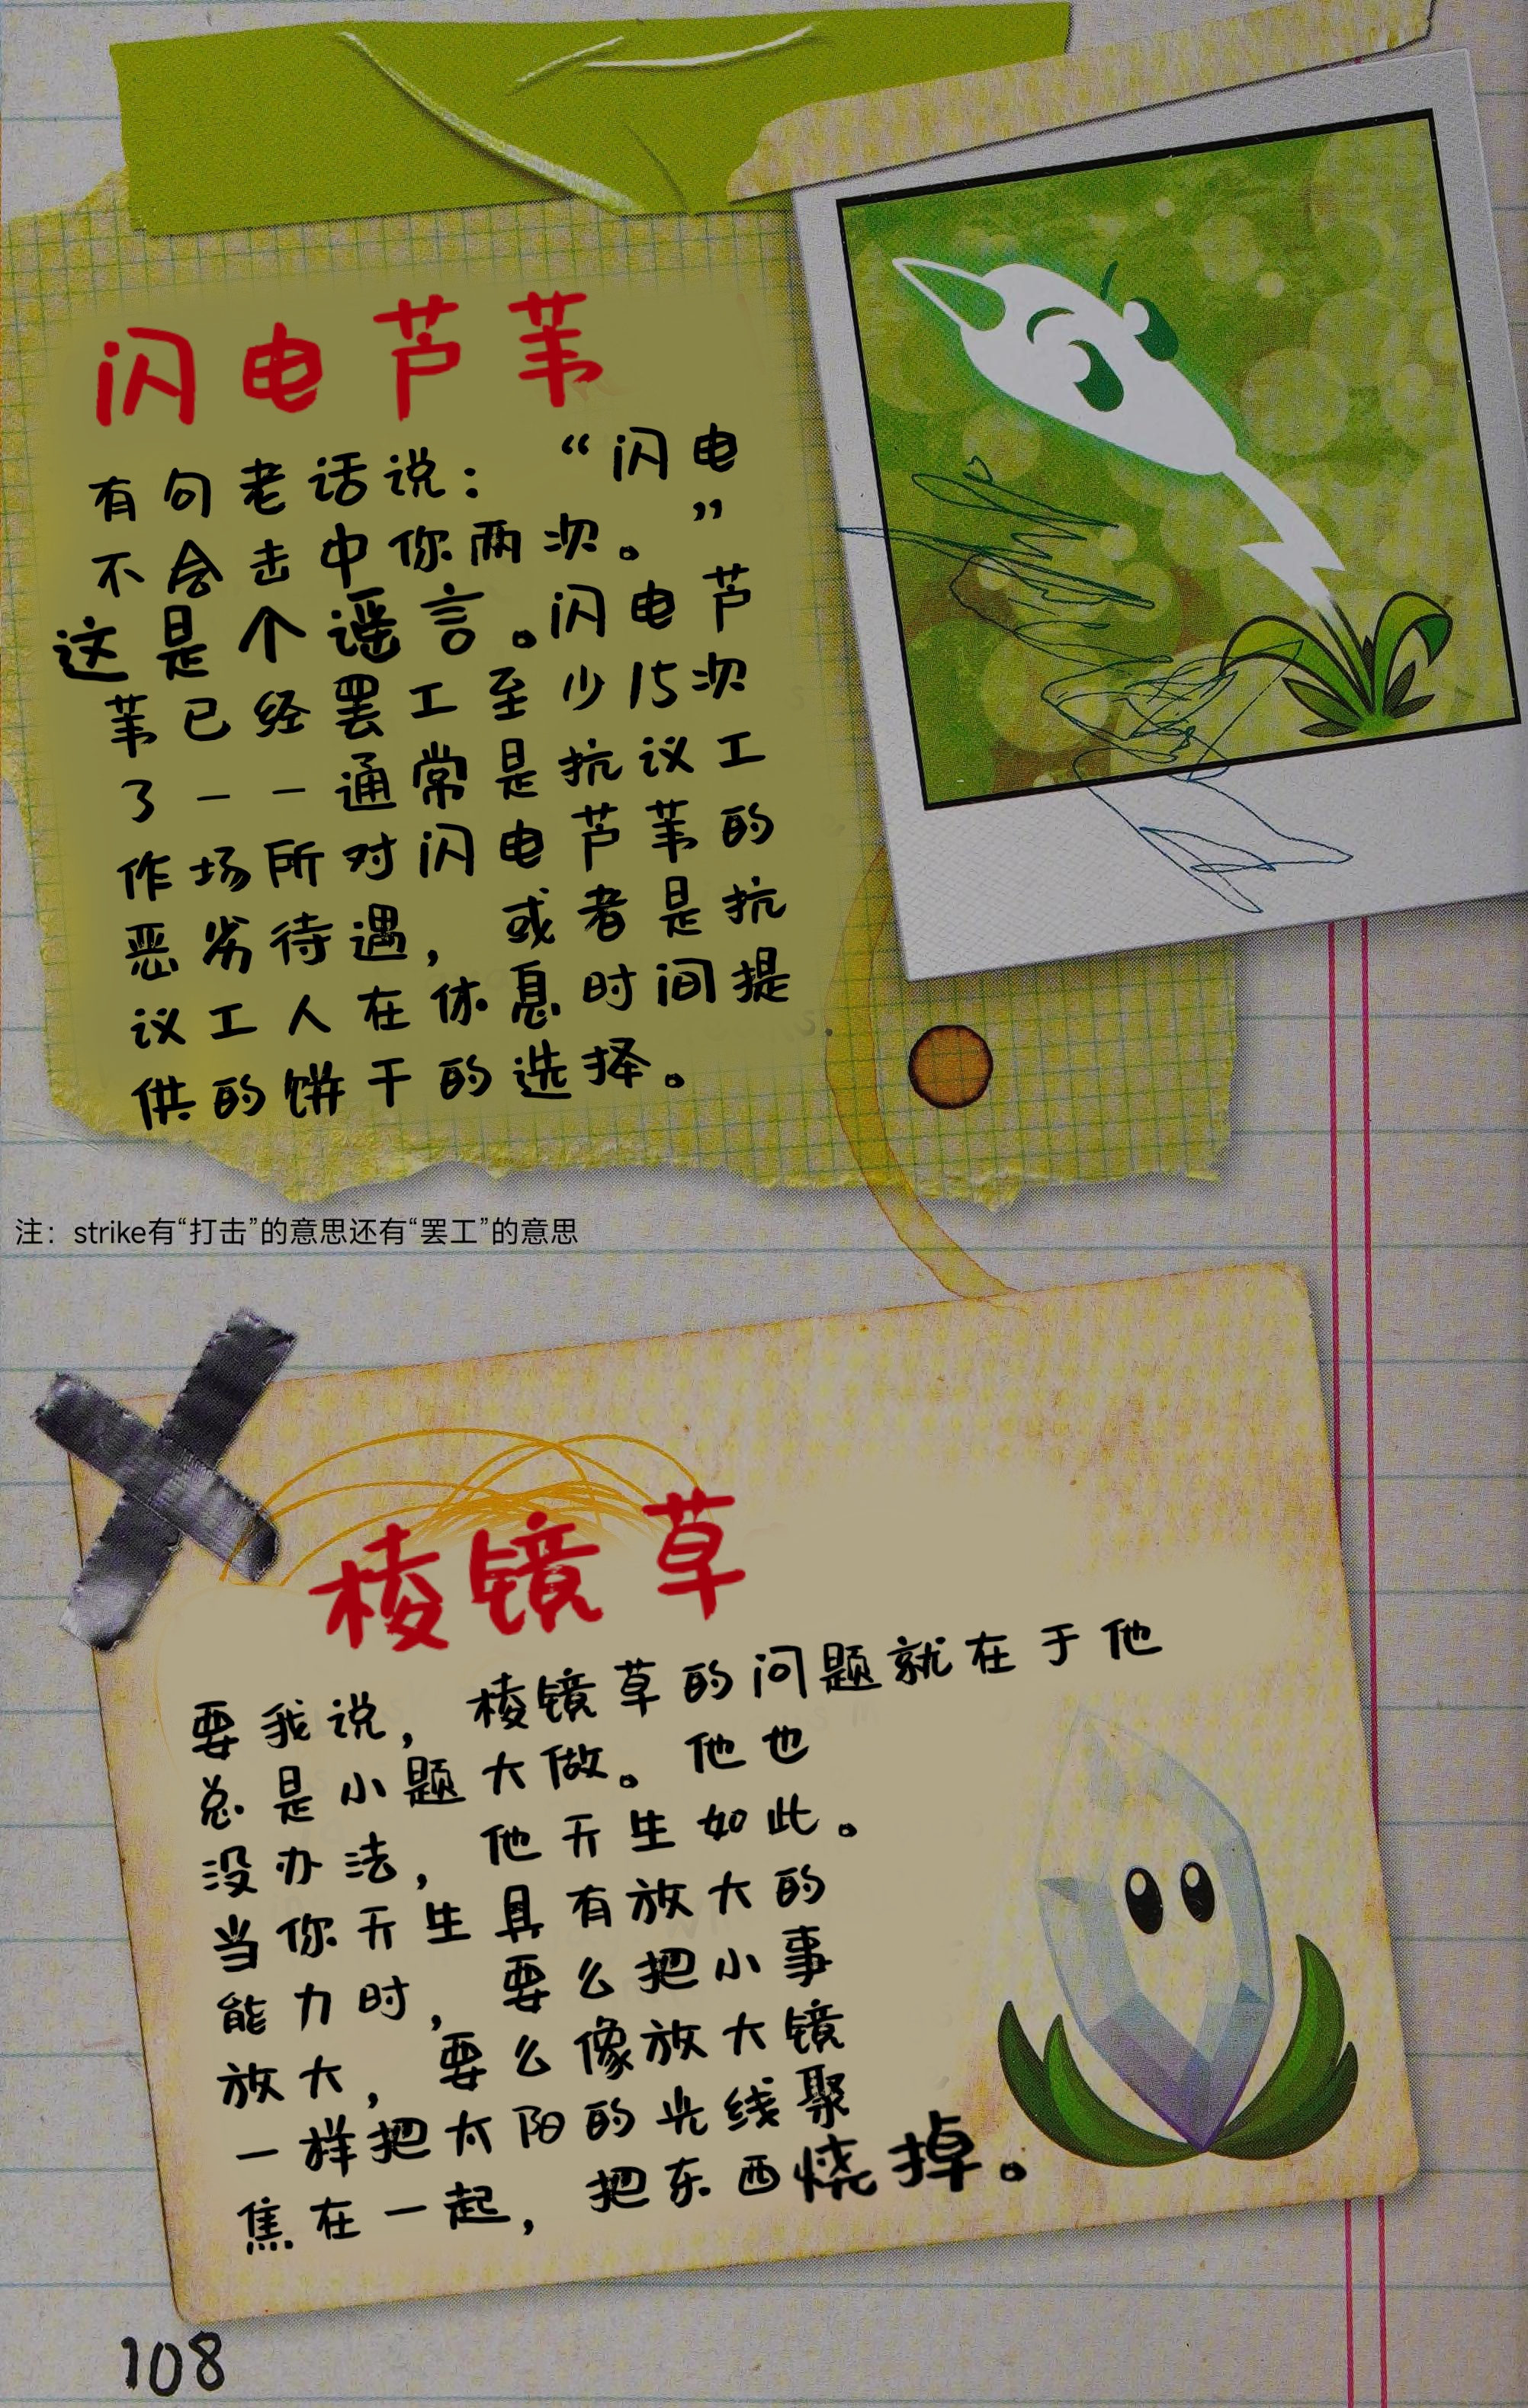 闪电芦苇
有句老话说：“闪电
不会击中你两次。”
这是个谣言。闪电芦
苇已经罢工至少15次
了——通常是抗议工
作场所对闪电芦苇的
恶劣待遇，或者是抗
议工人在休息时间提
供的饼干的选择。
注：strike有“打击”的意思还有“罢工”的意思
棱镜草
要我说，棱镜草的问题就在于他
总是小题大做。他也
没办法，他天生如此。
当你天生具有放大的
能力时，要么把小事
放大，要么像放大镜
一样把太阳的光线聚
焦在一起，把东西烧掉。
108